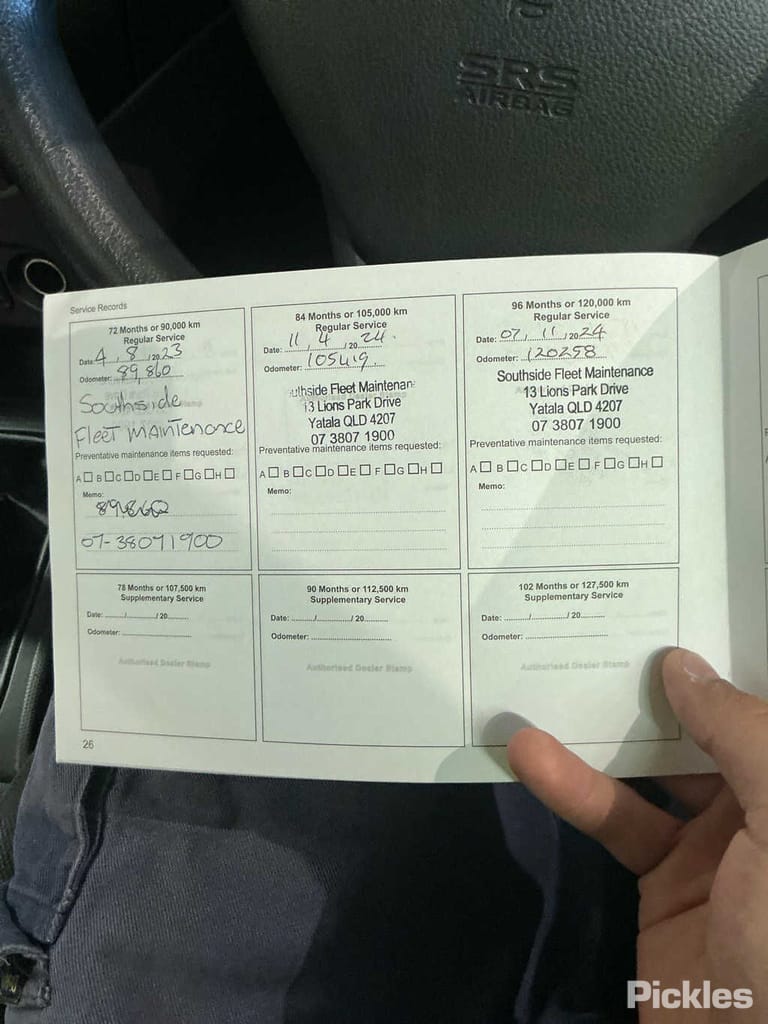 SRS
AIRBAG
Service Records
72 Months or 90,000 km
Regular Service
Date: 4 / 8 / 2023
Odometer: 89,860
Southside
Fleet Maintenance
Preventative maintenance items requested:
A☐ B☐ C☐ D☐ E☐ F☐ G☐ H☐
Memo:
89860
07-38071900
84 Months or 105,000 km
Regular Service
Date: 11 / 4 / 2024
Odometer: 105419
uthside Fleet Maintenan
13 Lions Park Drive
Yatala QLD 4207
07 3807 1900
Preventative maintenance items requested:
A☐ B☐ C☐ D☐ E☐ F☐ G☐ H☐
Memo:
96 Months or 120,000 km
Regular Service
Date: 07 / 11 / 2024
Odometer: 120258
Southside Fleet Maintenance
13 Lions Park Drive
Yatala QLD 4207
07 3807 1900
Preventative maintenance items requested:
A☐ B☐ C☐ D☐ E☐ F☐ G☐ H☐
Memo:
78 Months or 107,500 km
Supplementary Service
Date: ......./......./ 20.........
Odometer: ............................
Authorised Dealer Stamp
90 Months or 112,500 km
Supplementary Service
Date: ......./......./ 20.........
Odometer: ............................
Authorised Dealer Stamp
102 Months or 127,500 km
Supplementary Service
Date: ......./......./ 20.........
Odometer: ............................
Authorised Dealer Stamp
26
Pickles